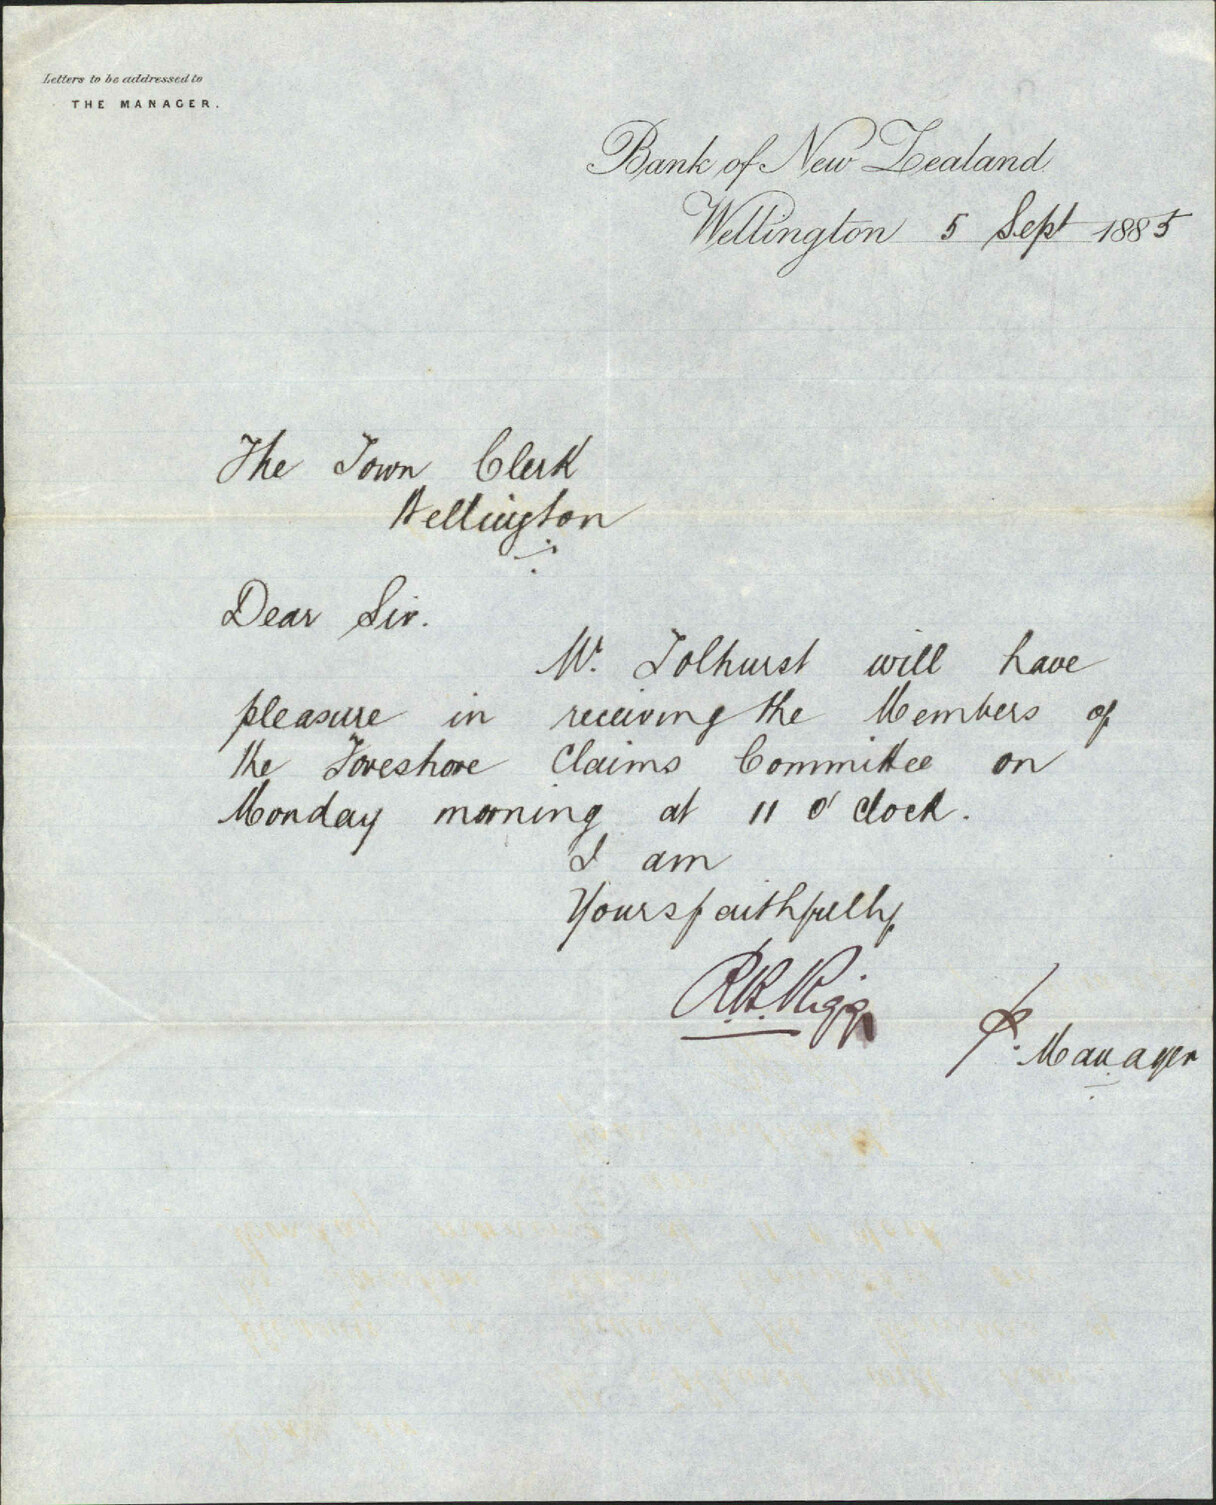 Letters to be addressed to
THE MANAGER.
Bank of New Zealand
Wellington 5 Sept 1885
The Town Clerk
Wellington
Dear Sir.
Mr. Tolhurst will have
pleasure in receiving the Members of
the Foreshore Claims Committee on
Monday morning at 11 o'clock.
I am
Yours faithfully
R.B. Rigg
p. Manager